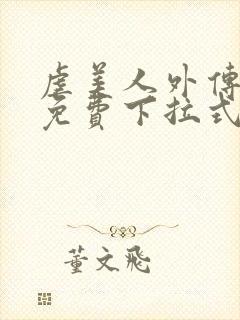 虐美人外傳
免費下拉式
董文飛